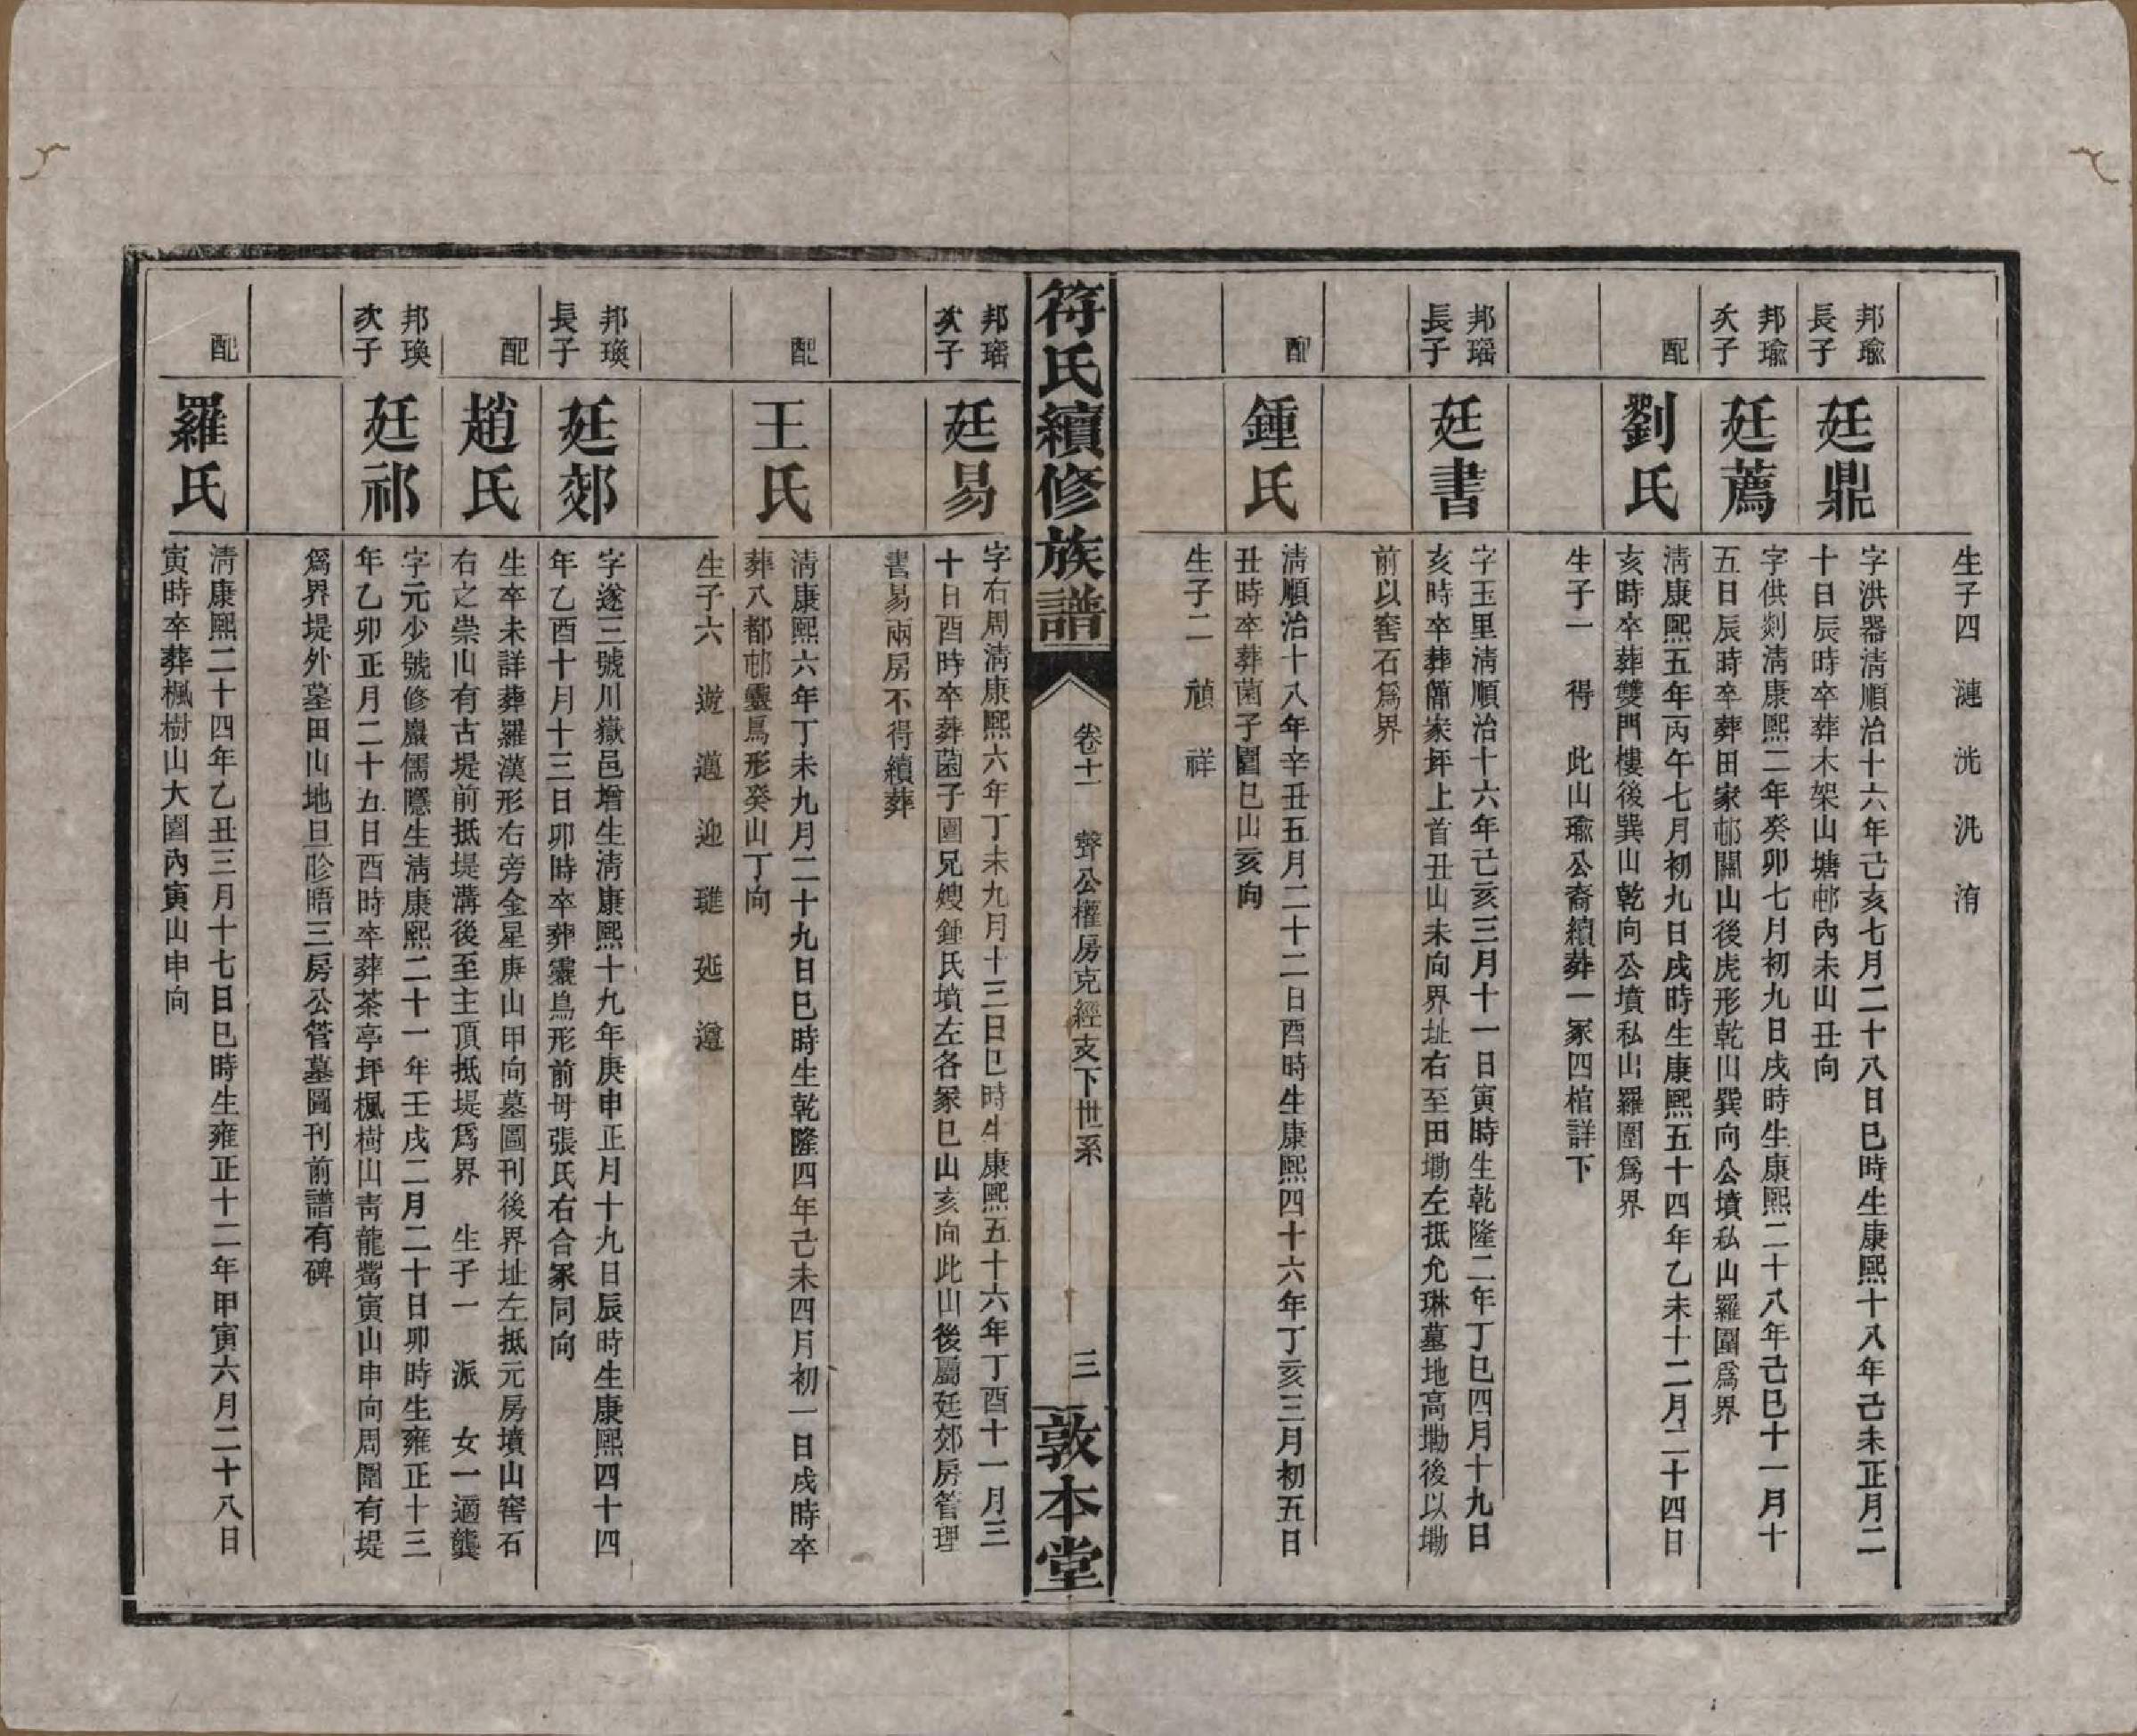 生子四　漣　洸　汎　洧
邦瑜
長子
廷鼎
字洪器淸順治十六年己亥七月二十八日巳時生康熙十八年己未正月二
十日辰時卒葬木架山塘邨內未山丑向
邦瑜
次子
廷薦
字供剡淸康熙二年癸卯七月初九日戌時生康熙二十八年己巳十一月十
五日辰時卒葬田家邨關山後虎形乾山巽向公墳私山羅圍爲界
配
劉氏
淸康熙五年丙午七月初九日戌時生康熙五十四年乙未十二月二十四日
亥時卒葬雙門樓後巽山乾向公墳私山羅圍爲界
生子一　得　此山瑜公裔續葬一冢四棺詳下
邦瑤
長子
廷書
字玉里淸順治十六年己亥三月十一日寅時生乾隆二年丁巳四月十九日
亥時卒葬簡家坪上首丑山未向界址右至田墈左抵允琳墓地高墈後以墈
前以窖石爲界
配
鍾氏
淸順治十八年辛丑五月二十二日酉時生康熙四十六年丁亥三月初五日
丑時卒葬菌子園巳山亥向
生子二　禎　祥
符氏續修族譜　卷十一　聲公權房克經支下世系　三　敦本堂
邦瑤
次子
廷易
字右周淸康熙六年丁未九月十三日巳時生康熙五十六年丁酉十一月三
十日酉時卒葬菌子園兄嫂鍾氏墳左各冢巳山亥向此山後屬廷郊房管理
書易兩房不得續葬
配
王氏
淸康熙六年丁未九月二十九日巳時生乾隆四年己未四月初一日戌時卒
葬八都邨靈鳥形癸山丁向
生子六　遊　邁　迎　璡　延　遵
邦瑍
長子
廷郊
字遂三號川嶽邑增生淸康熙十九年庚申正月十九日辰時生康熙四十四
年乙酉十月十三日卯時卒葬靈鳥形前毋張氏右合冢同向
配
趙氏
生卒未詳葬羅漢形右旁金星庚山甲向墓圖刊後界址左抵元房墳山窖石
右之崇山有古堤前抵堤溝後至主頂抵堤爲界　生子一　派　女一適龔
邦瑍
次子
廷祁
字元少號修巖儒隱生淸康熙二十一年壬戌二月二十日卯時生雍正十三
年乙卯正月二十五日酉時卒葬茶亭坪楓樹山靑龍嘴寅山申向周圍有堤
爲界堤外墓田山地旦昣晤三房公管墓圖刊前譜有碑
配
羅氏
淸康熙二十四年乙丑三月十七日巳時生雍正十二年甲寅六月二十八日
寅時卒葬楓樹山大園內寅山申向